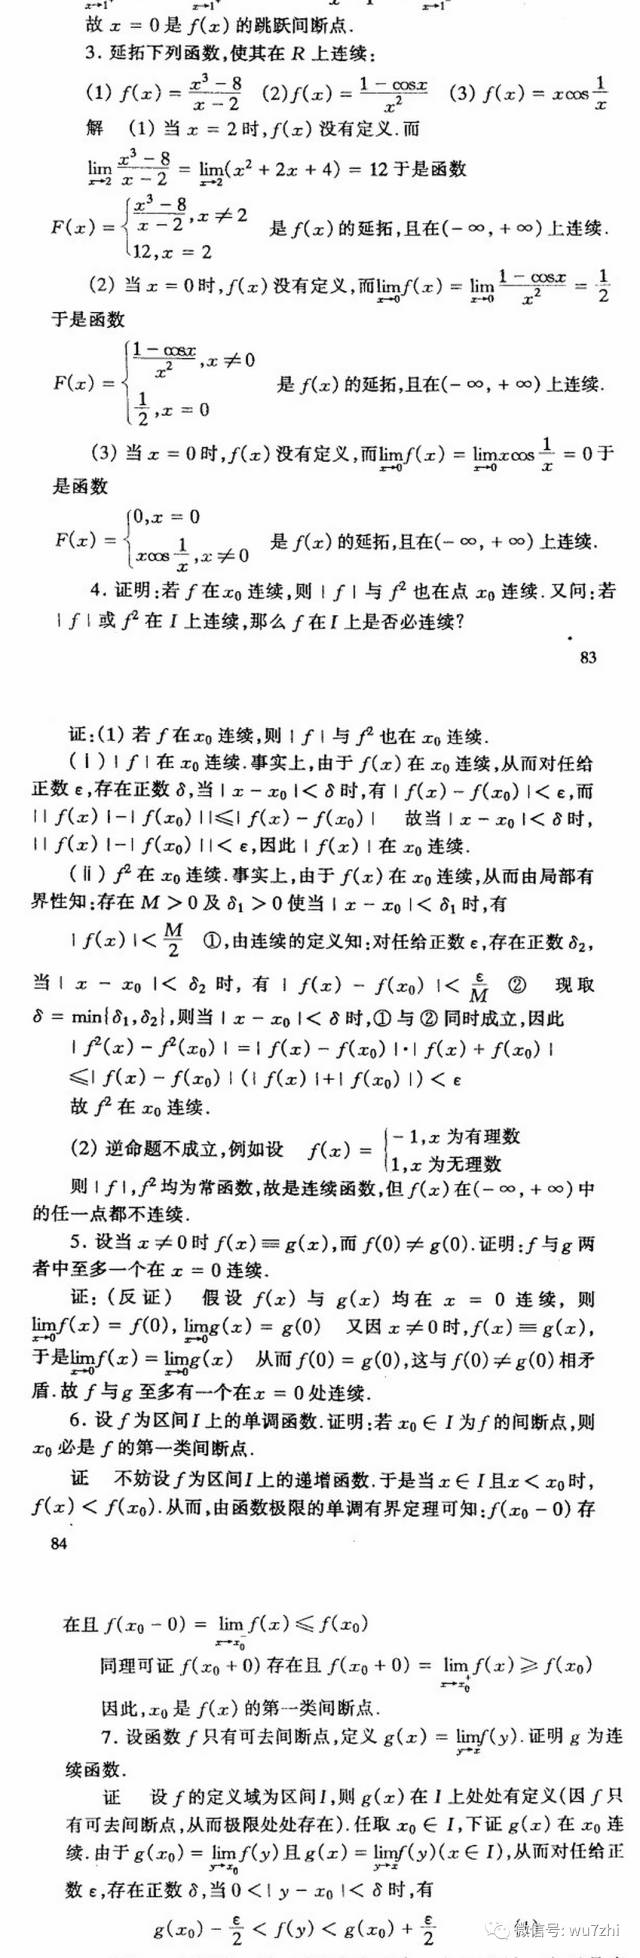 故 x = 0 是 f(x) 的跳跃间断点.
3. 延拓下列函数,使其在 R 上连续:
(1) f(x) = (x³ - 8)/(x - 2) (2) f(x) = (1 - cosx)/x² (3) f(x) = xcos 1/x
解 (1) 当 x = 2 时, f(x) 没有定义.而
lim_{x→2} (x³ - 8)/(x - 2) = lim_{x→2}(x² + 2x + 4) = 12 于是函数
F(x) = { (x³ - 8)/(x - 2), x ≠ 2
12, x = 2 是 f(x) 的延拓,且在(- ∞, + ∞) 上连续.
(2) 当 x = 0 时, f(x) 没有定义,而 lim_{x→0} f(x) = lim_{x→0} (1 - cosx)/x² = 1/2
于是函数
F(x) = { (1 - cosx)/x², x ≠ 0
1/2, x = 0 是 f(x) 的延拓,且在(- ∞, + ∞) 上连续.
(3) 当 x = 0 时, f(x) 没有定义,而 lim_{x→0} f(x) = lim_{x→0} xcos 1/x = 0 于
是函数
F(x) = { 0, x = 0
xcos 1/x, x ≠ 0 是 f(x) 的延拓,且在(- ∞, + ∞) 上连续.
4. 证明:若 f 在 x₀ 连续,则 | f | 与 f² 也在点 x₀ 连续.又问:若
| f | 或 f² 在 I 上连续,那么 f 在 I 上是否必连续?
83
证:(1) 若 f 在 x₀ 连续,则 | f | 与 f² 也在 x₀ 连续.
(ⅰ) | f | 在 x₀ 连续.事实上,由于 f(x) 在 x₀ 连续,从而对任给
正数 ε,存在正数 δ,当 | x - x₀ | < δ 时,有 | f(x) - f(x₀) | < ε,而
| | f(x) | - | f(x₀) | | ≤ | f(x) - f(x₀) | 故当 | x - x₀ | < δ 时,
| | f(x) | - | f(x₀) | | < ε,因此 | f(x) | 在 x₀ 连续.
(ⅱ) f² 在 x₀ 连续.事实上,由于 f(x) 在 x₀ 连续,从而由局部有
界性知:存在 M > 0 及 δ₁ > 0 使当 | x - x₀ | < δ₁ 时,有
| f(x) | < M/2 ①,由连续的定义知:对任给正数 ε,存在正数 δ₂,
当 | x - x₀ | < δ₂ 时,有 | f(x) - f(x₀) | < ε/M ② 现取
δ = min{δ₁,δ₂},则当 | x - x₀ | < δ 时,①与②同时成立,因此
| f²(x) - f²(x₀) | = | f(x) - f(x₀) | · | f(x) + f(x₀) |
≤ | f(x) - f(x₀) | ( | f(x) | + | f(x₀) | ) < ε
故 f² 在 x₀ 连续.
(2) 逆命题不成立,例如设 f(x) = { - 1, x 为有理数
1, x 为无理数
则 | f |, f² 均为常函数,故是连续函数,但 f(x) 在(- ∞, + ∞) 中
的任一点都不连续.
5. 设当 x ≠ 0 时 f(x) ≡ g(x),而 f(0) ≠ g(0).证明: f 与 g 两
者中至多一个在 x = 0 连续.
证:(反证) 假设 f(x) 与 g(x) 均在 x = 0 连续,则
lim_{x→0} f(x) = f(0), lim_{x→0} g(x) = g(0) 又因 x ≠ 0 时, f(x) ≡ g(x),
于是 lim_{x→0} f(x) = lim_{x→0} g(x) 从而 f(0) = g(0),这与 f(0) ≠ g(0) 相矛
盾.故 f 与 g 至多有一个在 x = 0 处连续.
6. 设 f 为区间 I 上的单调函数.证明:若 x₀ ∈ I 为 f 的间断点,则
x₀ 必是 f 的第一类间断点.
证 不妨设 f 为区间 I 上的递增函数.于是当 x ∈ I 且 x < x₀ 时,
f(x) < f(x₀).从而,由函数极限的单调有界定理可知: f(x₀ - 0) 存
84
在且 f(x₀ - 0) = lim_{x→x₀⁻} f(x) ≤ f(x₀)
同理可证 f(x₀ + 0) 存在且 f(x₀ + 0) = lim_{x→x₀⁺} f(x) ≥ f(x₀)
因此, x₀ 是 f(x) 的第一类间断点.
7. 设函数 f 只有可去间断点,定义 g(x) = lim_{y→x} f(y).证明 g 为连
续函数.
证 设 f 的定义域为区间 I,则 g(x) 在 I 上处处有定义(因 f 只
有可去间断点,从而极限处处存在).任取 x₀ ∈ I,下证 g(x) 在 x₀ 连
续.由于 g(x₀) = lim_{y→x₀} f(y) 且 g(x) = lim_{y→x} f(y)(x ∈ I),从而对任给正
数 ε,存在正数 δ,当 0 < | y - x₀ | < δ 时,有
g(x₀) - ε/2 < f(y) < g(x₀) + ε/2
微信号: wu7zhi